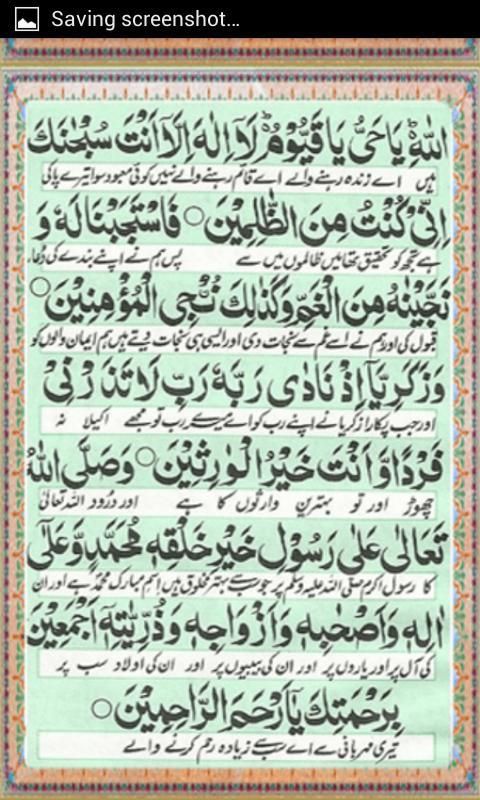 Saving screenshot...
اللهِ يَا حَيُّ يَا قَيُّوْمُ لَآ اِلٰهَ اِلَّآ اَنْتَ سُبْحٰنَكَ
ہیں اے زندہ رہنے والے اے قائم رہنے والے نہیں کوئی معبود سوا تیرے پاکی
اِنِّىْ كُنْتُ مِنَ الظّٰلِمِيْنَ ○ فَاسْتَجَبْنَا لَهٗ وَ
ہے تجھ کو تحقیق تھا میں ظالموں میں سے پس ہم نے اپنے بندے کی دعاء
نَجَّيْنٰهُ مِنَ الْغَمِّ وَكَذٰلِكَ نُــْٔجِى الْمُؤْمِنِيْنَ ○
قبول کی اور ہم نے اسے غم سے نجات دی اور ایسی ہی نجات دیتے ہیں ہم ایمان والوں کو
وَزَكَرِيَّآ اِذْ نَادٰى رَبَّهٗ رَبِّ لَا تَذَرْنِىْ
اور جب پکارا زکریا نے اپنے رب کو اے میرے رب تو مجھے اکیلا نہ
فَرْدًا وَّاَنْتَ خَيْرُ الْوٰرِثِيْنَ ○ وَصَلَّى اللهُ
چھوڑ اور تو بہترین وارثوں کا ہے اور درود اللہ تعالیٰ
تَعَالٰى عَلٰى رَسُوْلِ خَيْرِ خَلْقِهٖ مُحَمَّدٍ وَّعَلٰٓى
کا رسول اکرم صلی اللہ علیہ وسلم پر جو سب سے بہتر مخلوق ہیں اسم مبارک محمدؐ ہے اور ان
اٰلِهٖ وَاَصْحٰبِهٖ وَاَزْوَاجِهٖ وَذُرِّيّٰتِهٖٓ اَجْمَعِيْنَ
کی آل پر اور یاروں پر اور ان کی بیبیوں پر اور ان کی اولاد سب پر
بِرَحْمَتِكَ يَآ اَرْحَمَ الرَّاحِمِيْنَ ○
تیری مہربانی سے اے سب سے زیادہ رحم کرنے والے